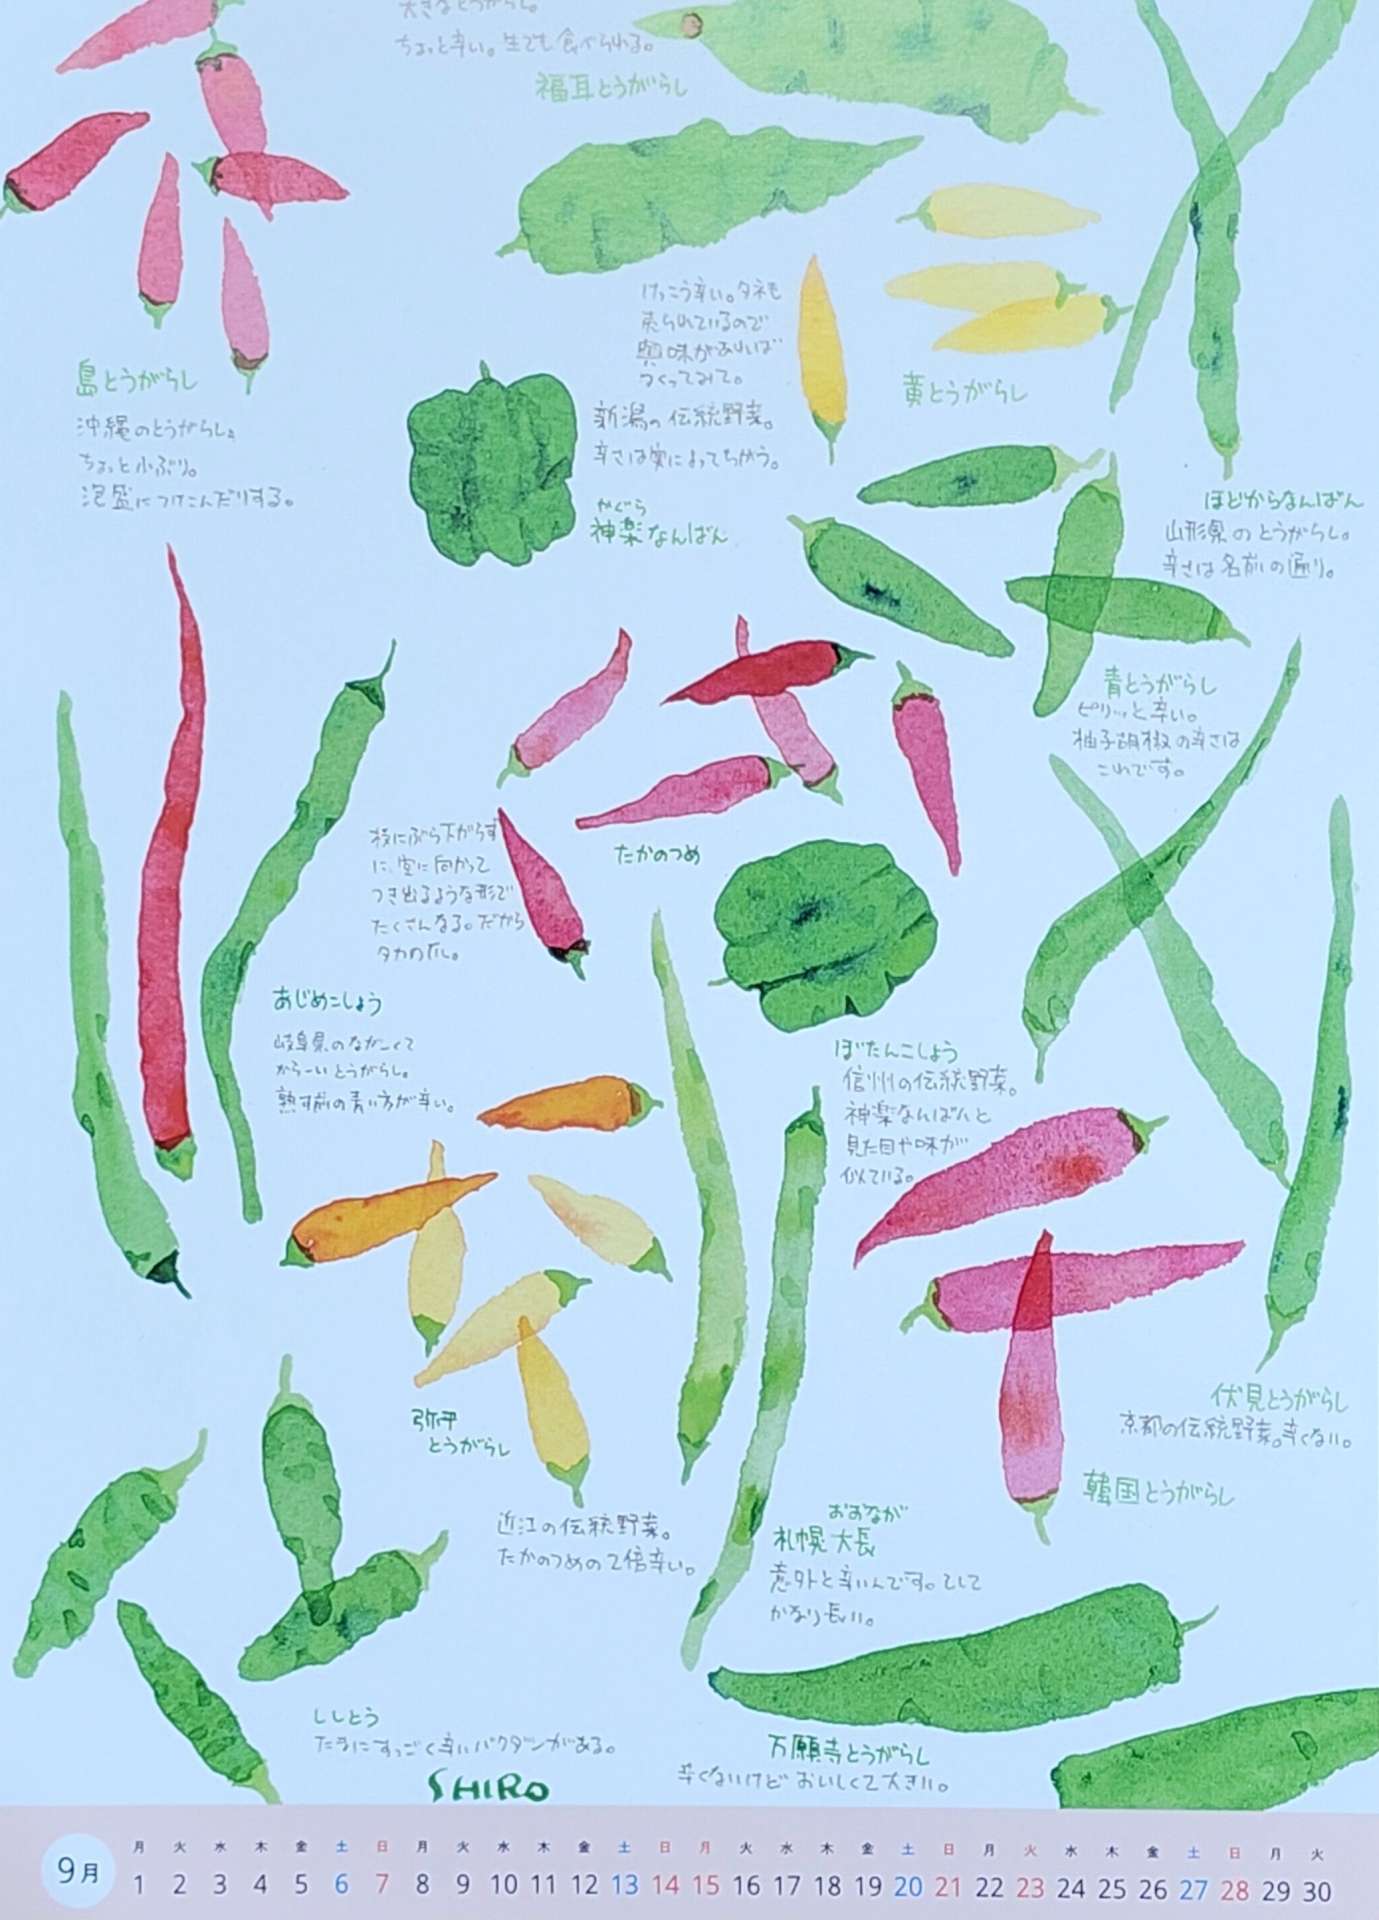 大きなとうがらし。
ちょっと辛い。生でも食べられる。
福耳とうがらし
島とうがらし
沖縄のとうがらし。
ちょっと小ぶり。
泡盛につけこんだりする。
けっこう辛い。タネも
売られているので
興味があれば
つくってみて。
黄とうがらし
新潟の伝統野菜。
辛さは実によってちがう。
かぐら
神楽なんばん
ほどからなんばん
山形県のとうがらし。
辛さは名前の通り。
青とうがらし
ピリッと辛い。
柚子胡椒の辛さは
これです。
枝にぶら下がらず
に、空に向かって
つき出るような形で
たくさんなる。だから
タカの爪。
たかのつめ
あじめこしょう
岐阜県のながーくて
からーいとうがらし。
熟す前の青い方が辛い。
ぼたんこしょう
信州の伝統野菜。
神楽なんばんと
見た目や味が
似ている。
弥平
とうがらし
近江の伝統野菜。
たかのつめの2倍辛い。
伏見とうがらし
京都の伝統野菜。辛くない。
韓国とうがらし
おおなが
札幌大長
意外と辛いんです。そして
かなり長い。
ししとう
たまにすっごく辛いバクダンがある。
万願寺とうがらし
辛くないけどおいしくて大きい。
SHIRO
9月
月 火 水 木 金 土 日 月 火 水 木 金 土 日 月 火 水 木 金 土 日 月 火 水 木 金 土 日 月 火
1 2 3 4 5 6 7 8 9 10 11 12 13 14 15 16 17 18 19 20 21 22 23 24 25 26 27 28 29 30